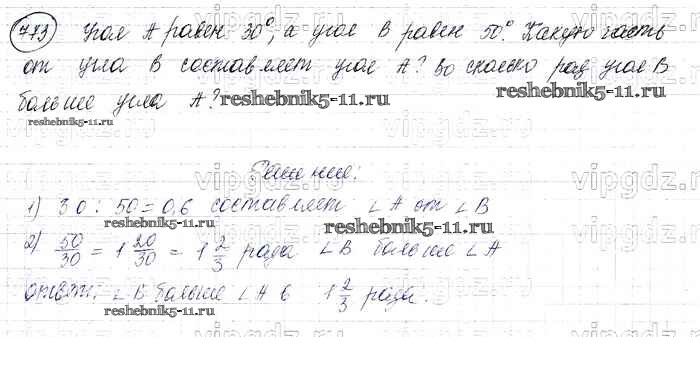 773 Угол A равен 30°, а угол B равен 50°. Какую часть
от угла B составляет угол A? Во сколько раз угол B
больше угла A?
reshebnik5-11.ru
reshebnik5-11.ru
reshebnik5-11.ru
Решение:
1) 30 : 50 = 0,6 составляет ∠A от ∠B
reshebnik5-11.ru
2) 50/30 = 1 20/30 = 1 2/3 раза ∠B больше ∠A
ответ: ∠B больше ∠A в 1 2/3 раза.
reshebnik5-11.ru
vipgdz.ru vipgdz.ru vipgdz.ru
vipgdz.ru vipgdz.ru vipgdz.ru
vipgdz.ru vipgdz.ru vipgdz.ru
vipgdz.ru vipgdz.ru vipgdz.ru
vipgdz.ru vipgdz.ru vipgdz.ru